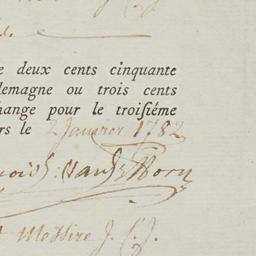 e deux cents cinquante
lemagne ou trois cents
change pour le troisiéme
rs le 2 Janvier 1782
Messire J.